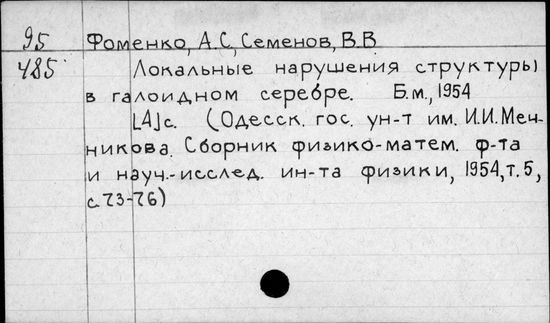 95 Фоменко, А.С, Семенов, В.В
485 Локальные нарушения структуры
в галоидном серебре. Б.м., 1954
[4]с. (Одесск. гос. ун-т им. И.И.Меч-
никова. Сборник физико-матем. ф-та
и науч.-исслед. ин-та физики, 1954, т.5,
с.73-76)